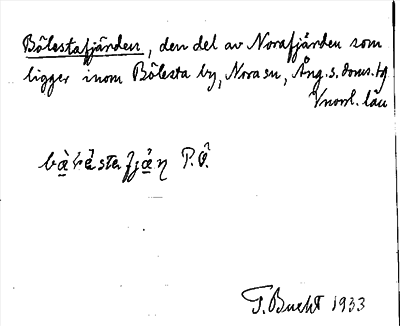 Bölestafjärden, den del av Norafjärden som
ligger inom Bölesta by, Nora sn, Ång. s. doms.
Vnorrl. län
P. Ö.
T. Bucht 1933